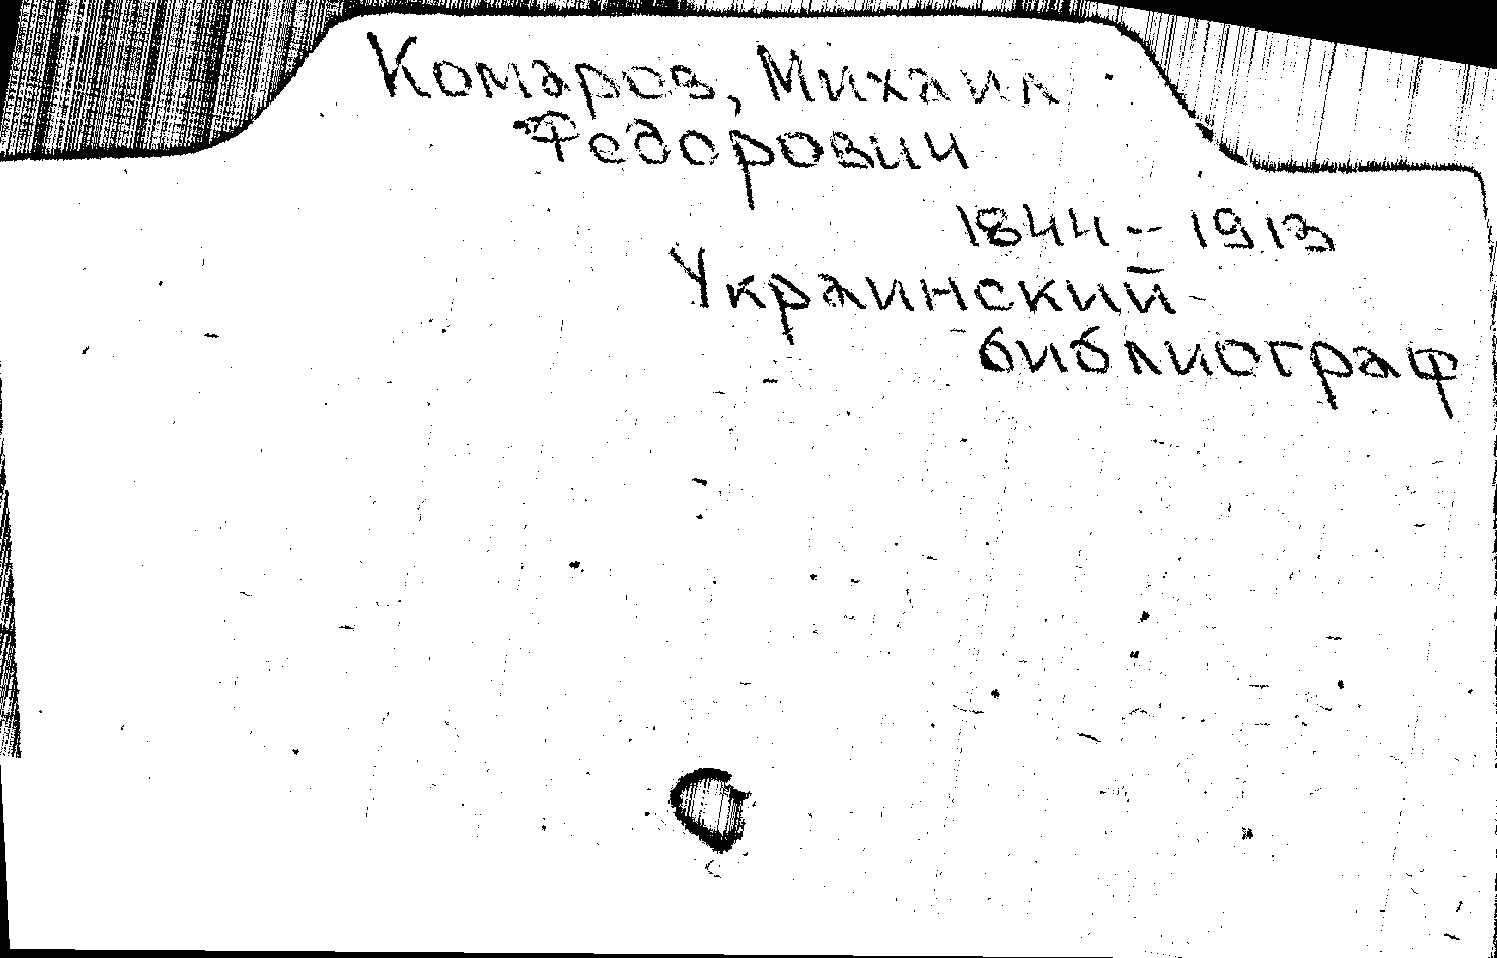 Комаров, Михаил
Федорович
1844-1913
Украинский
библиограф